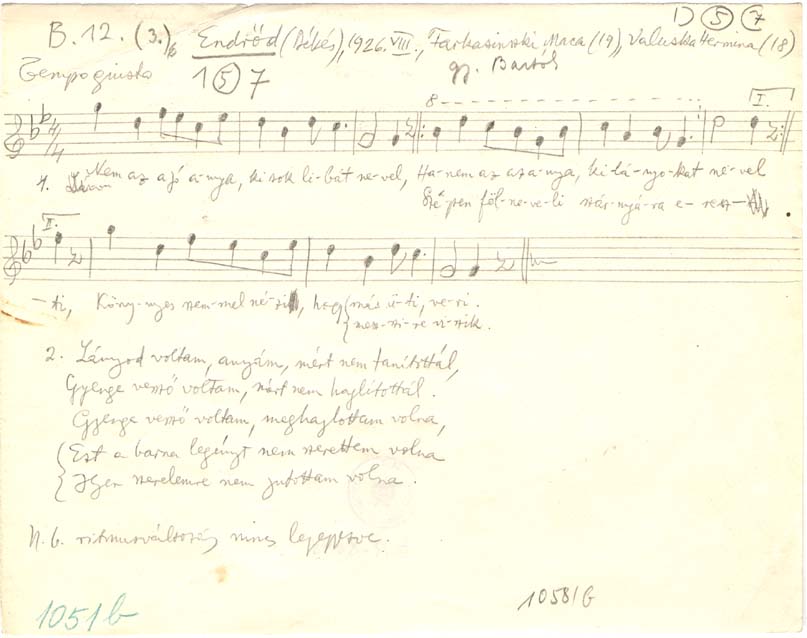 1) 5 7
B. 12. (3.)/b Endrőd (Békés), 1926. VIII., Farkasinszki Maca (19), Valuska Hermina (18)
Tempo giusto 1 5 7 gy. Bartók
8 I.
4/4
1. Nem az a jó a-nya, ki sok li-bát ne-vel, Ha-nem az az a-nya, ki lá-nyo-kat ne-vel
Szé-pen föl-ne-ve-li szár-nyá-ra e-resz-
II.
-ti, Köny-nyes szem-mel né-zi, hogy más ü-ti, ve-ri.
mesz-szi-re vi-szik.
2. Lányod voltam, anyám, mért nem tanítottál,
Gyenge vessző voltam, mért nem hajlítottál.
Gyenge vessző voltam, meghajlottam volna,
Ezt a barna legényt nem szerettem volna
Ilyen szerelemre nem jutottam volna.
N. b. ritmusváltozás nincs lejegyezve.
1051b
1058/b